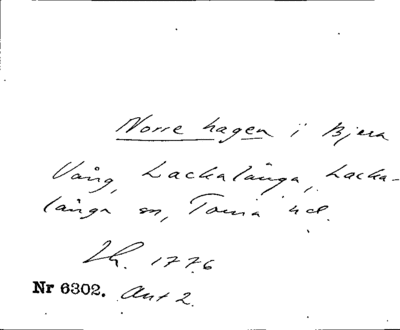 Norre hagen i Bjera
Vång, Lackalänga, Lacka-
länga sn, Torna hd.
Lh. 1776
Nr 6302. Akt 2.